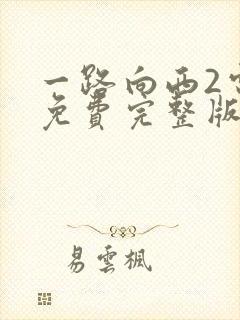 一路向西2
免费完整版
易雲楓